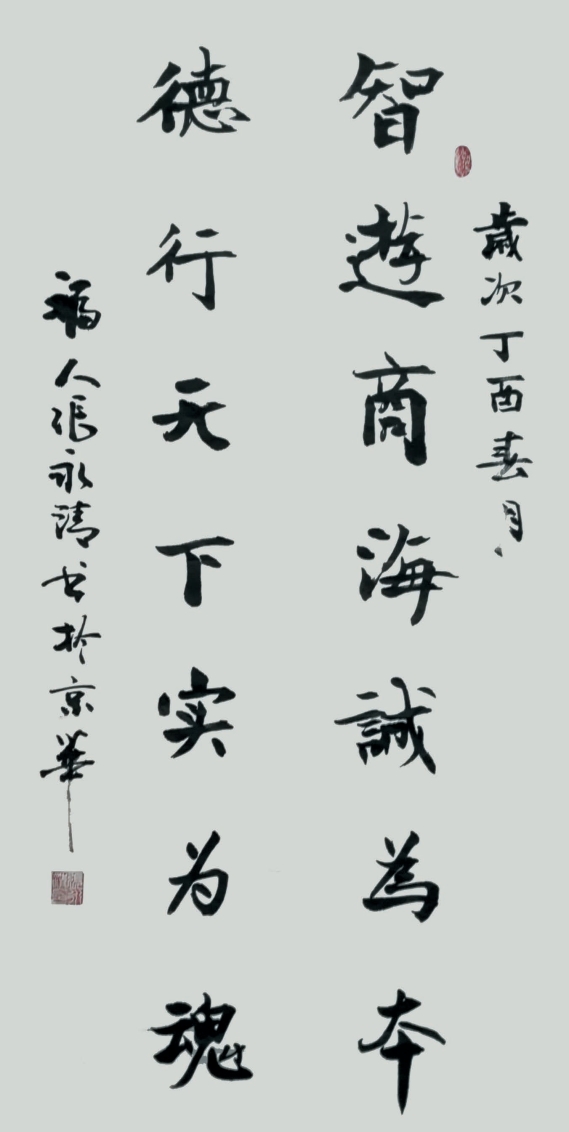 歲次丁酉春月
智遊商海誠為本
德行天下实为魂
福人張永清书於京華